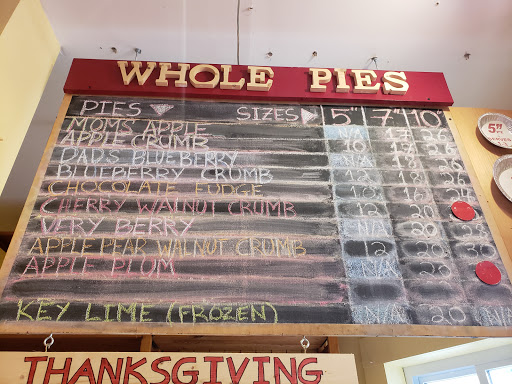 WHOLE PIES
PIES SIZES 5" 7" 10"
MOM'S APPLE N/A 17 26
APPLE CRUMB 10 17 26
DAD'S BLUEBERRY N/A 18
BLUEBERRY CRUMB 12 18
CHOCOLATE FUDGE 10 16 24
CHERRY WALNUT CRUMB 12 20
VERY BERRY N/A 20
APPLE PEAR WALNUT CRUMB 12 20 30
APPLE PLUM N/A 20
KEY LIME (FROZEN) N/A 20 N/A
THANKSGIVING
5"